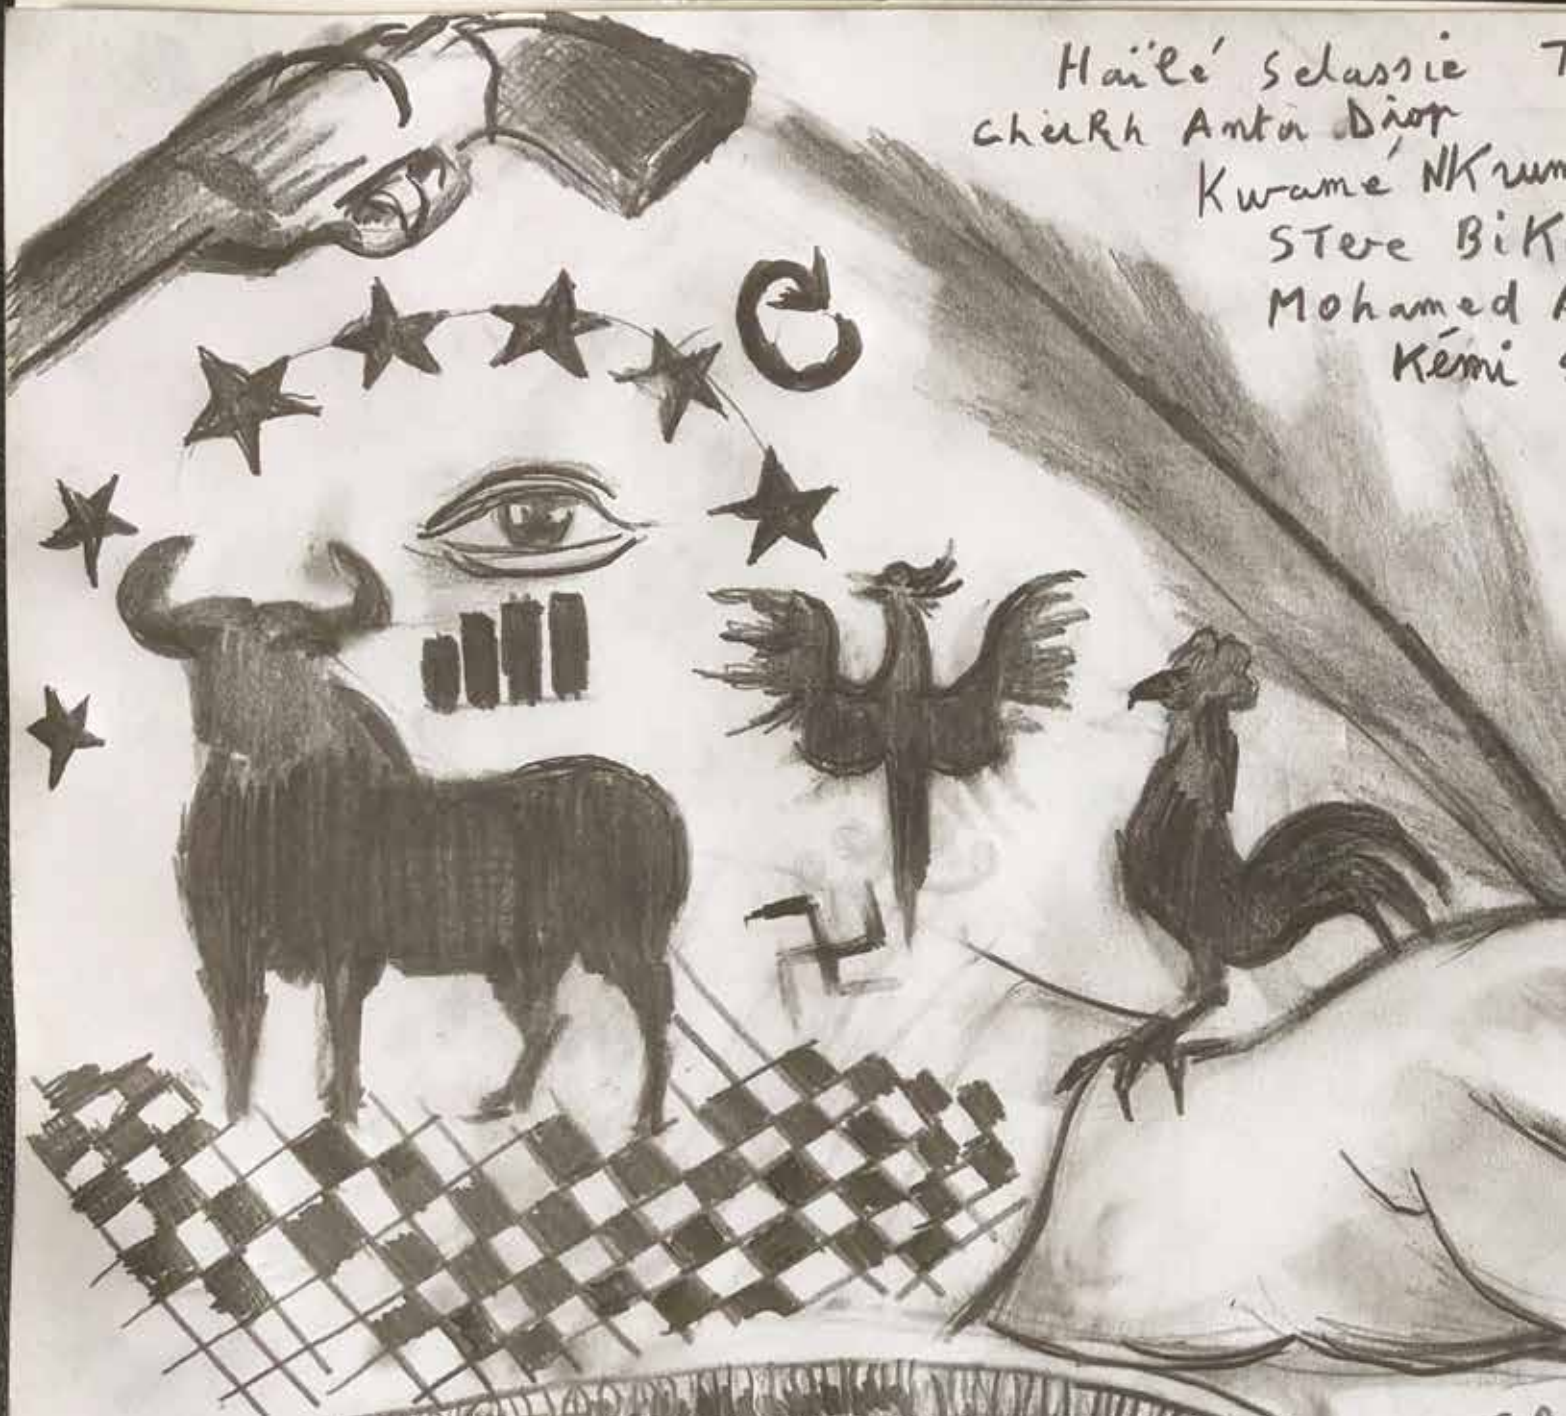 Haïlé Selassie T
Cheikh Anta Diop
Kwamé NKrum
STeve BiK
Mohamed A
Kémi